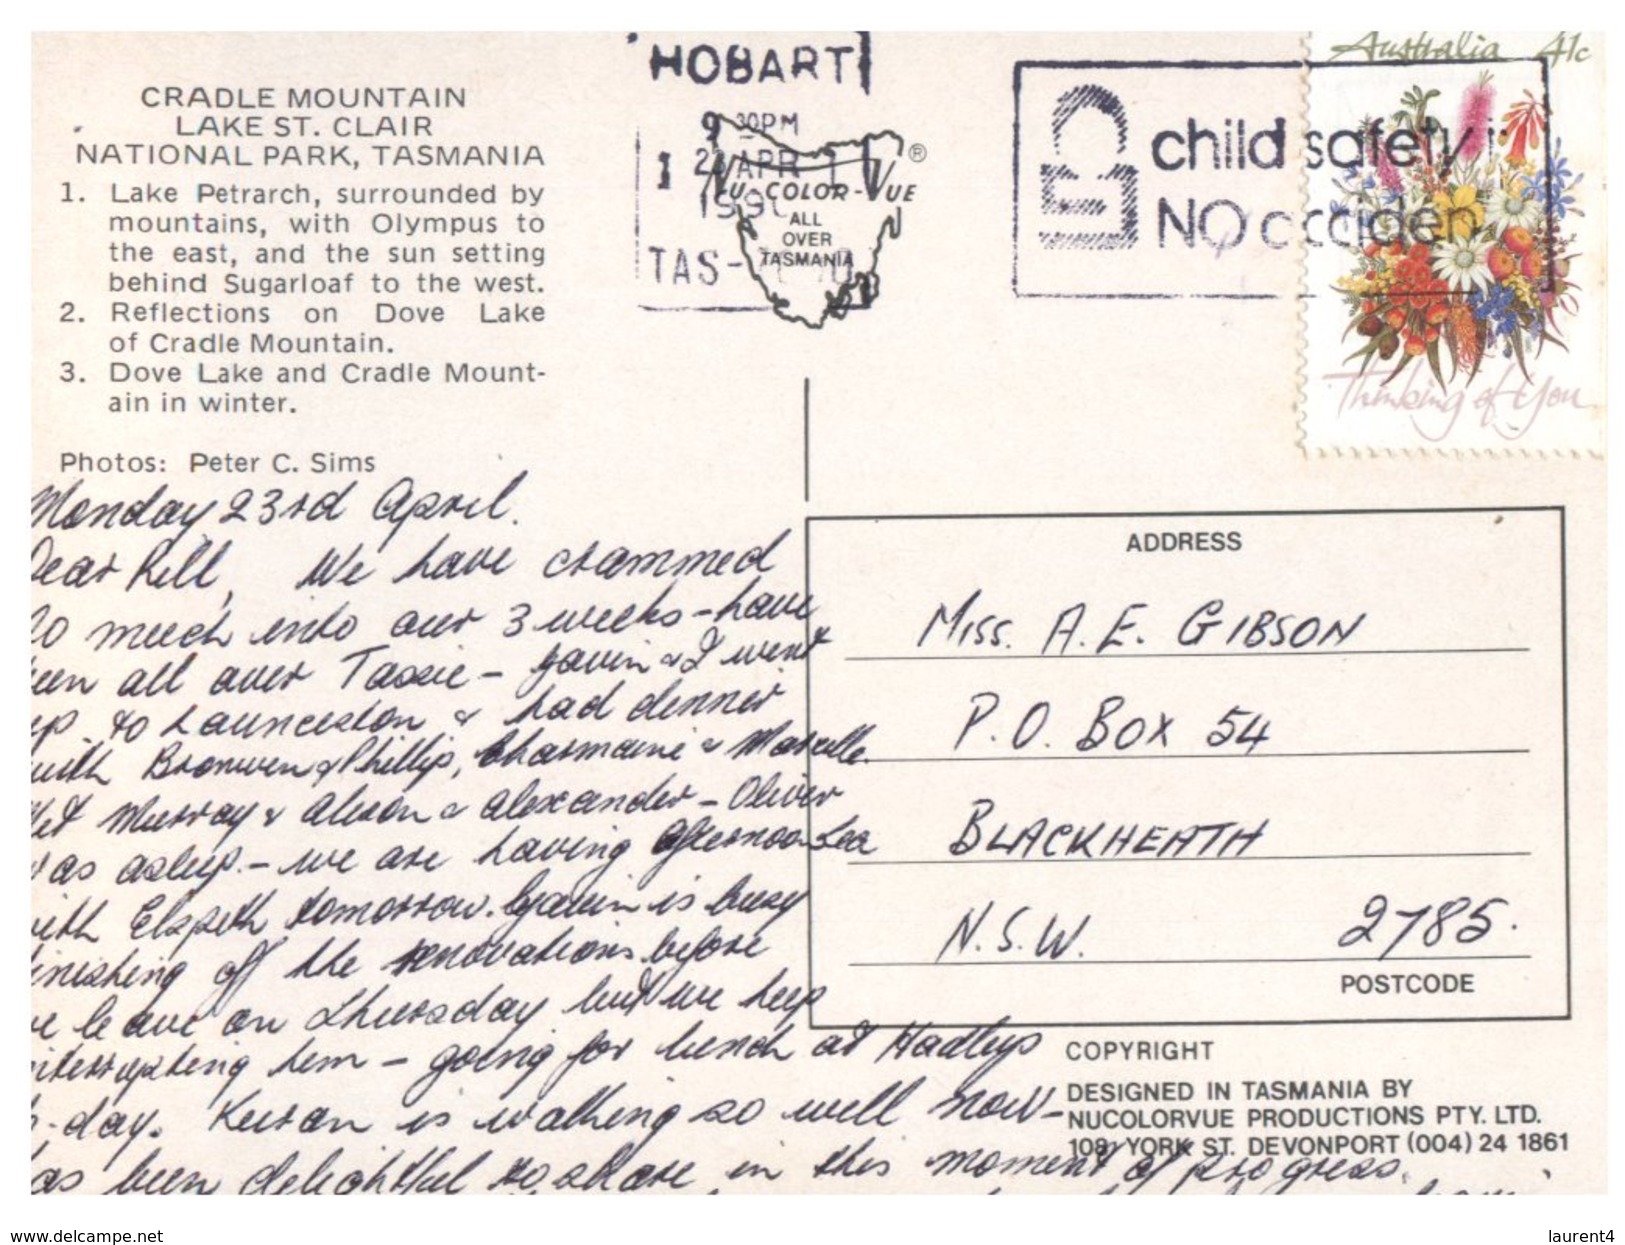 CRADLE MOUNTAIN
LAKE ST. CLAIR
NATIONAL PARK, TASMANIA
1. Lake Petrarch, surrounded by
mountains, with Olympus to
the east, and the sun setting
behind Sugarloaf to the west.
2. Reflections on Dove Lake
of Cradle Mountain.
3. Dove Lake and Cradle Mount-
ain in winter.
Photos: Peter C. Sims
HOBART
9 30PM
APR
TAS-
NU-COLOR-VUE ®
ALL
OVER
TASMANIA
child safety
NO acciden
Australia 41c
Thinking of You
Monday 23rd April.
Dear We have crammed
so much into our 3 weeks - have
been all over Tassie - Gavin & I went
up to Launceston & had dinner
with Bronwen & Phillip, Charmaine &
Met Murray & Alison & Alexander - Oliver
was asleep. - we are having afternoon tea
with Elspeth tomorrow. Gavin is busy
finishing off the renovations before
we leave on Thursday but we keep
interrupting him - going for lunch at Hadleys
to-day. Kieran is walking so well now -
has been delightful to share in this moment of progress.
ADDRESS
MISS. A. E. GIBSON
P.O. BOX 54
BLACKHEATH
N.S.W. 2785.
POSTCODE
COPYRIGHT
DESIGNED IN TASMANIA BY
NUCOLORVUE PRODUCTIONS PTY. LTD.
108 YORK ST. DEVONPORT (004) 24 1861
www.delcampe.net
laurent4